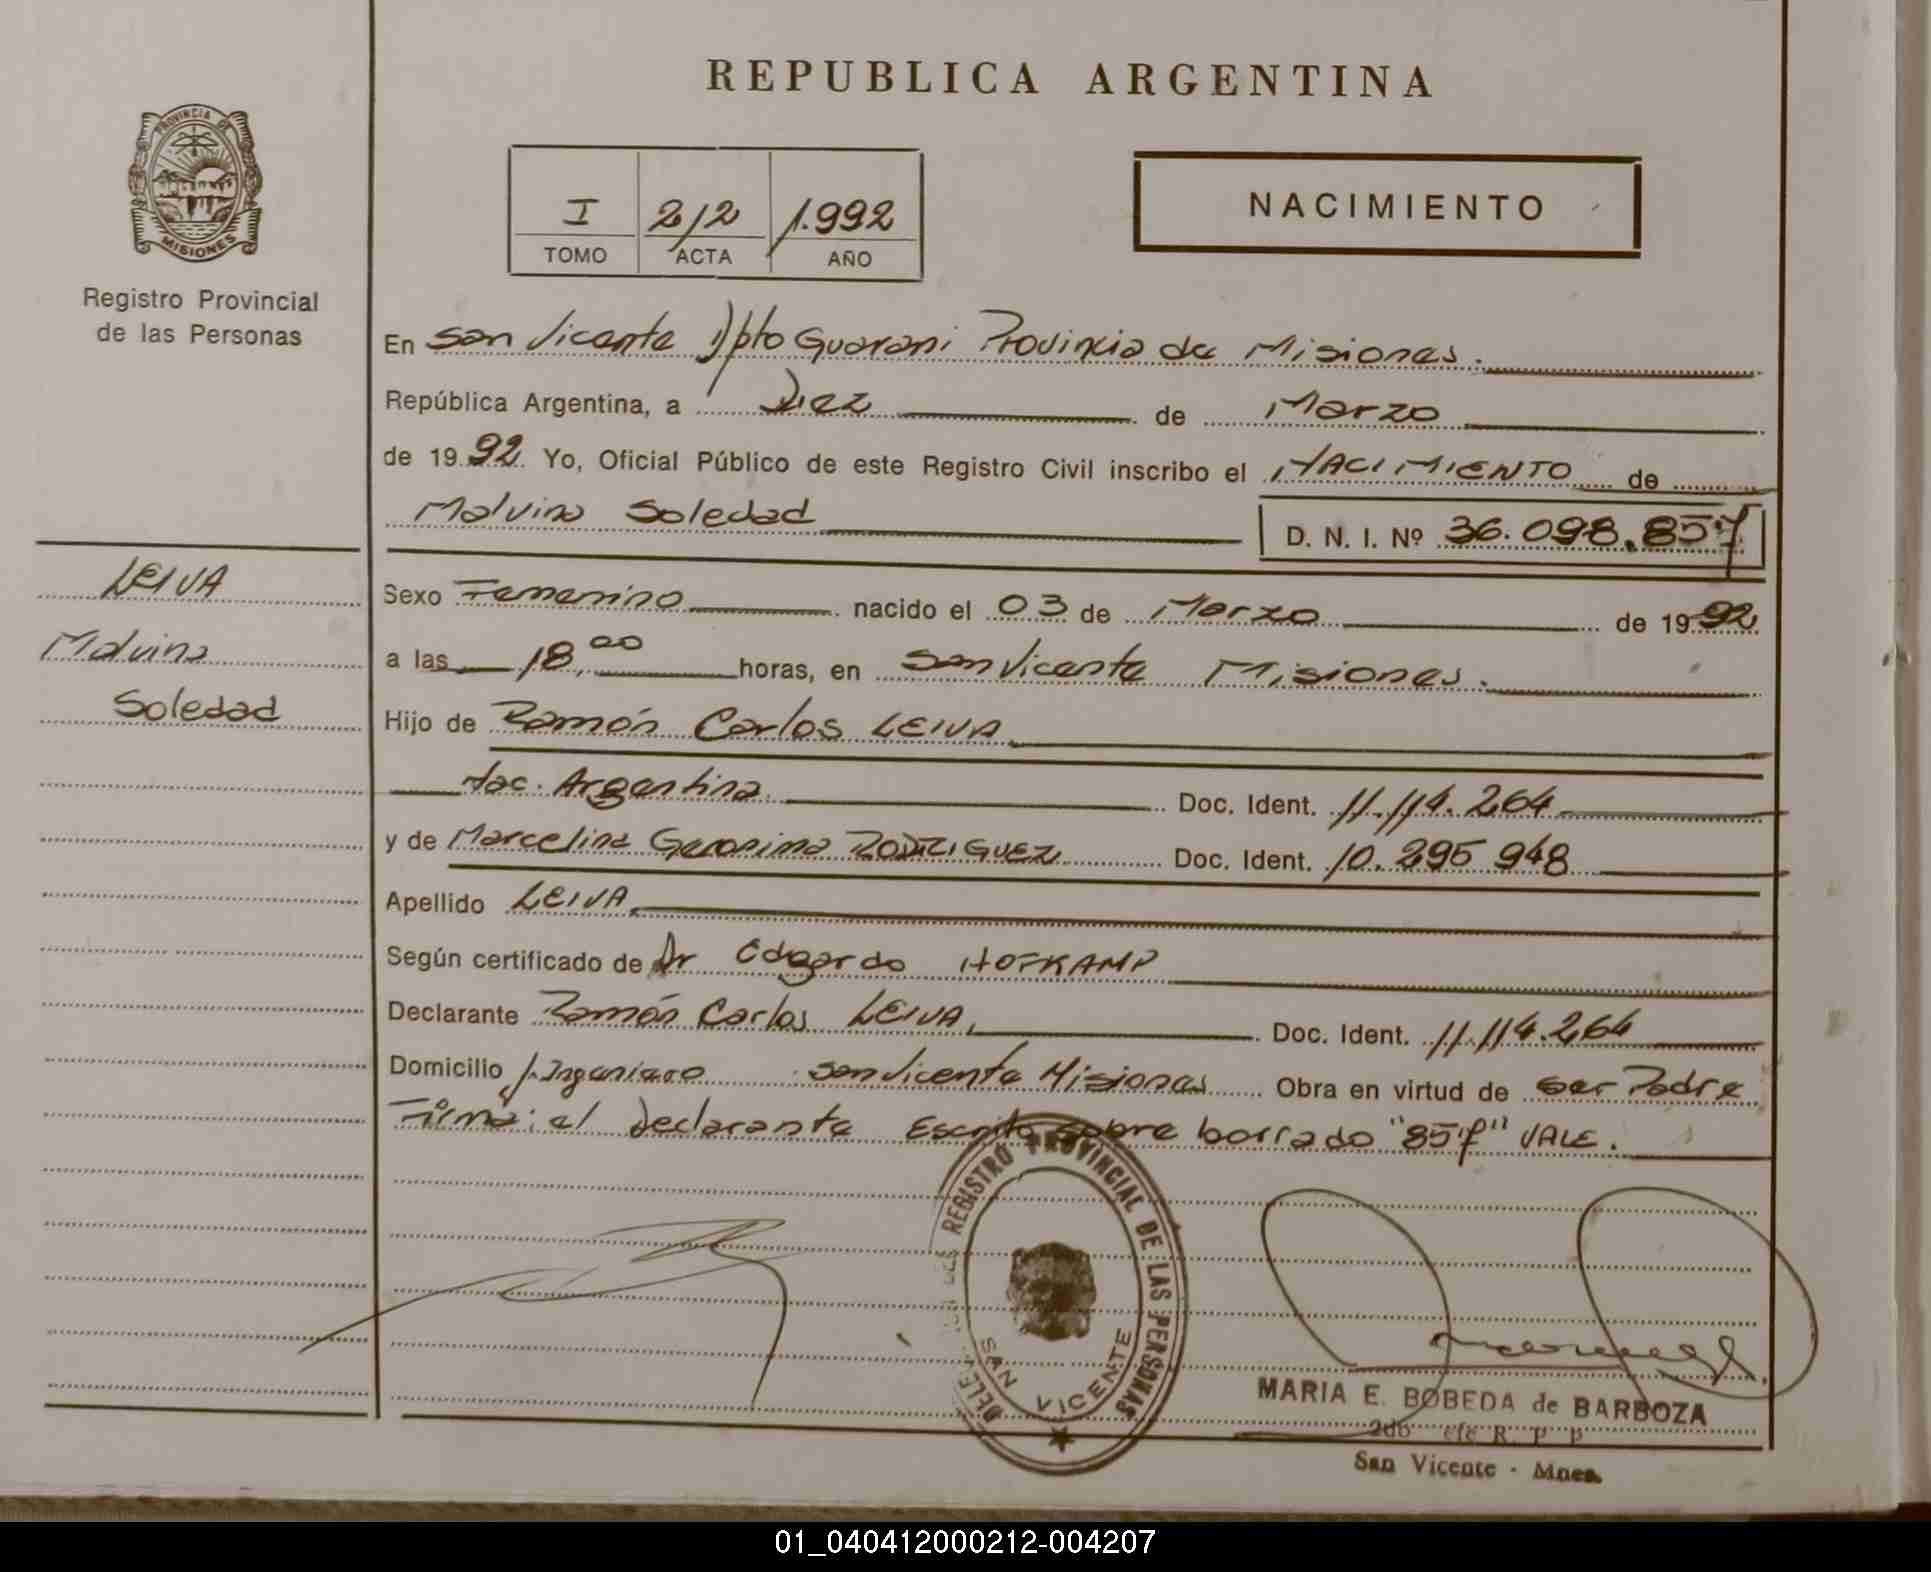 REPUBLICA ARGENTINA
PROVINCIA DE
MISIONES
Registro Provincial
de las Personas
I 212 1.992
TOMO ACTA AÑO
NACIMIENTO
En San Vicente Dpto Guarani Provincia de Misiones.
República Argentina, a Diez de Marzo
de 1992 Yo, Oficial Público de este Registro Civil inscribo el NACIMIENTO de
Malvina Soledad D. N. I. Nº 36.098.857
LEIVA
Malvina
Soledad
Sexo Femenino nacido el 03 de Marzo de 1992
a las 18,00 horas, en San Vicente Misiones.
Hijo de Ramón Carlos LEIVA
Nac. Argentina. Doc. Ident. 11.114.264
y de Marcelina Geronima RODRIGUEZ Doc. Ident. 10.295 948
Apellido LEIVA
Según certificado de Dr Edgardo HOFKAMP
Declarante Ramón Carlos LEIVA, Doc. Ident. 11.114.264
Domicilio J. Ingeniero San Vicente Misiones Obra en virtud de ser Padre
Firma: el Declarante Escrito sobre borrado "857" VALE.
REGISTRO PROVINCIAL DE LAS PERSONAS
SAN VICENTE
MARIA E. BOBEDA de BARBOZA
2do R. P. P
San Vicente - Mnes.
01_040412000212-004207